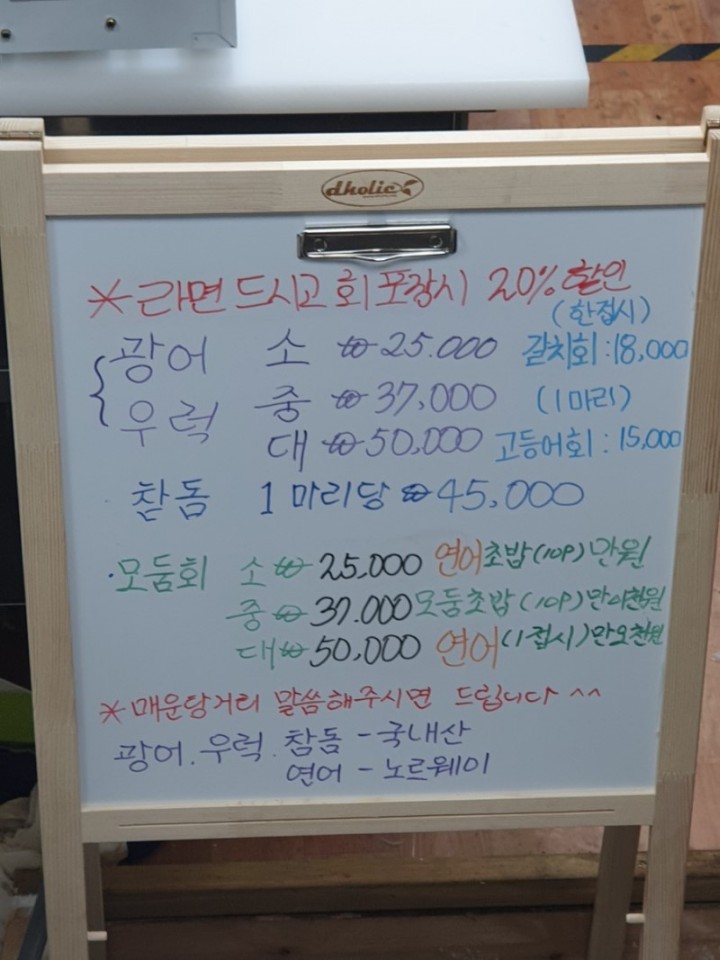 dholic
*라면드시고 회 포장시 20% 할인
(한접시)
광어 소 ₩25.000 갈치회:18,000
우럭 중 ₩37,000 (1마리)
대 ₩50,000 고등어회:15,000
참돔 1마리당 ₩45,000
·모둠회 소₩ 25,000 연어초밥(10P)만원
중₩ 37.000 모둠초밥(10P)만이천원
대₩50,000 연어(1접시)만오천원
*매운탕거리 말씀해주시면 드립니다 ^^
광어.우럭.참돔-국내산
연어-노르웨이